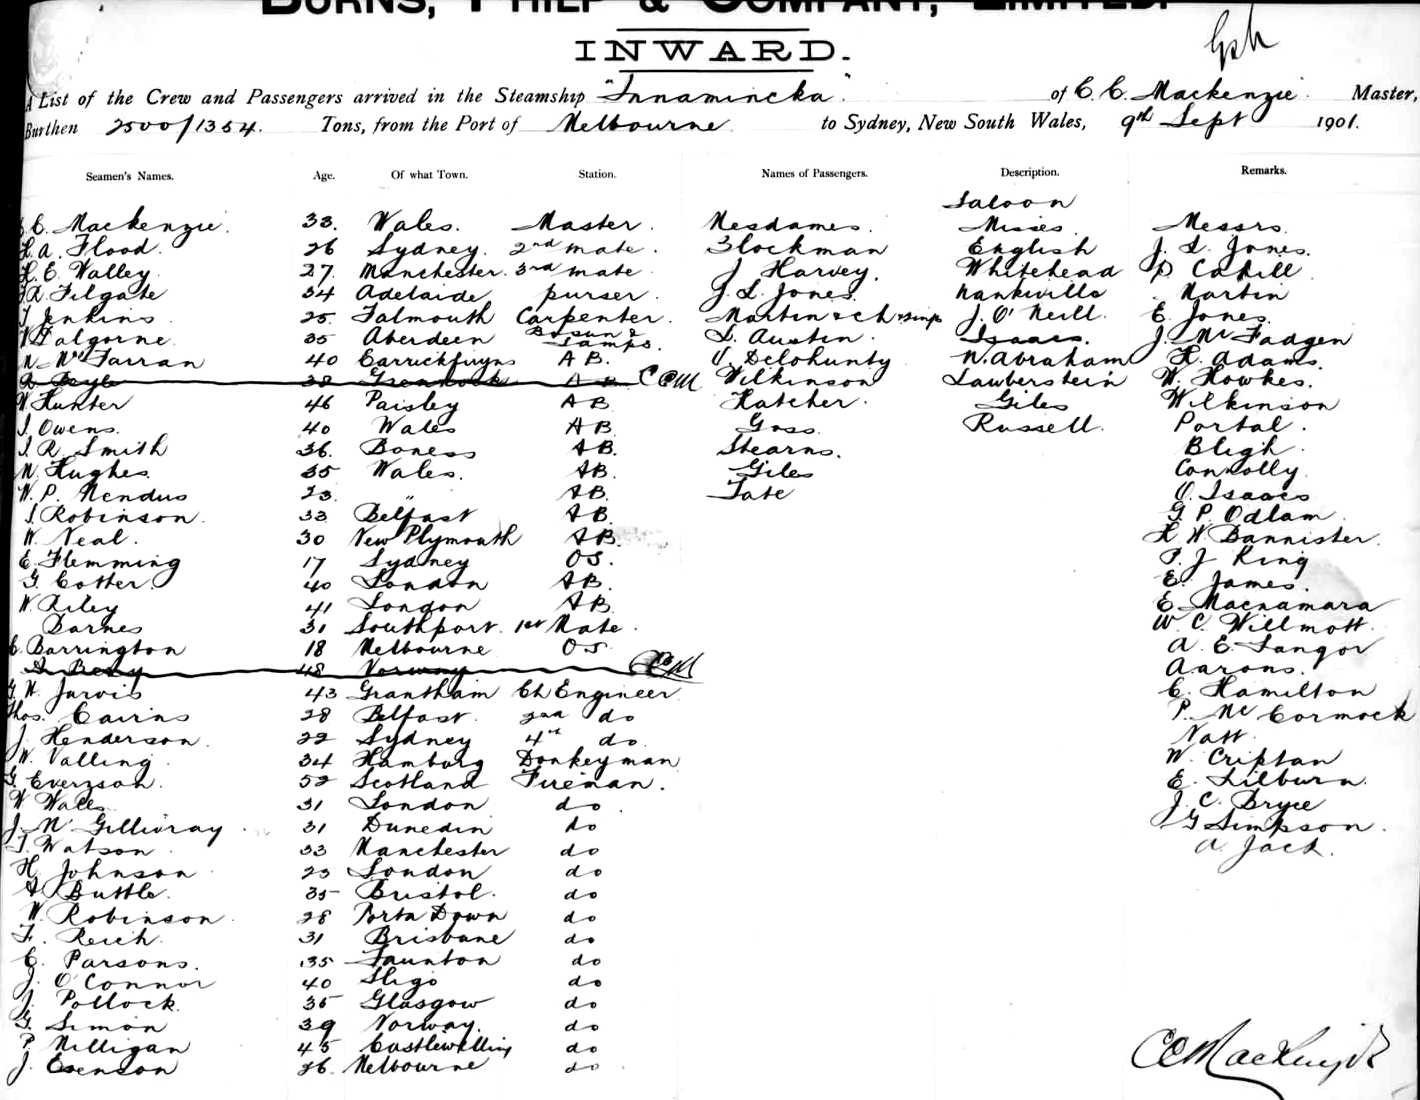 BURNS, PHILP & COMPANY, LIMITED.
INWARD.
A List of the Crew and Passengers arrived in the Steamship "Innamincka" of C. C. Mackenzie Master,
Burthen 2500/1354. Tons, from the Port of Melbourne to Sydney, New South Wales, 9th Sept 1901.
Seamen's Names. Age. Of what Town. Station. Names of Passengers. Description. Remarks.
Saloon
C. Mackenzie. 33. Wales. Master. Mesdames. Misses Messrs.
A. Flood. 26 Sydney. 2nd mate. Blockman English J. L. Jones.
E. Walley. 27. Manchester. 3rd mate J Harvey. Whitehead P Cahill
Filgate 34 Adelaide purser. J. L. Jones. Nankiville Martin
Jenkins 25. Falmouth Carpenter. Martin & ch J. O'Neill E. Jones.
Dalgorne 35 Aberdeen Bosun & Lamps. L. Austin. Isaacs. J. McFadgen
McFarran 40 Carrickfurgns AB. V. Delohunty N. Abraham H. Adams.
38 Greenock AB CCM Wilkinson Lauberstein W. Howkes.
W Hunter 46 Paisley AB Hatcher. Giles Wilkinson
J. Owens. 40 Wales AB Goss Russell. Portal.
J. R. Smith 36. Boness AB. Stearns. Bligh
N. Hughes. 35 Wales. AB. Giles Connolly
W. P. Mendus 23. " AB. Tate O. Isaacs
J. Robinson. 33 Belfast AB G P Odlam
W. Neal. 30 New Plymouth AB. H W Bannister.
E. Flemming 17 Sydney OS. P. J King
G. Cotter. 40 London AB. E. James.
W. Riley 41 London AB E. Macnamara
Barnes 31 Southport. 1st Mate. W. C. Willmott.
E. Barrington 18 Melbourne OS A. E. Langor
48 Norway CCM Aarons.
G. W. Jarvis 43 Grantham Ch Engineer. C. Hamilton
Thos. Cairns 28 Belfast. 2nd do P. McCormack
J. Henderson. 22 Sydney 4th do. Natt
W. Valling. 34 Hamburg Donkeyman W. Criptan
G. Everson. 52 Scotland Fireman. E. Lilburn.
W Wales 31 London do. J. C. Bryce
J. McGillivray 31 Dunedin do G Simpson.
J. Watson. 33 Manchester do A. Jack.
H. Johnson 23 London do
A Buttle. 35 Bristol. do
W. Robinson 28 Porta Down do
F. Reich. 31 Brisbane do
C. Parsons. 35 Taunton do
J. O'Connor 40 Sligo do
J. Pollock. 35 Glasgow do
G. Simon 39 Norway. do
P. Milligan 45 Castlewelling do
J. Esenson 26. Melbourne do
CC Mackenzie